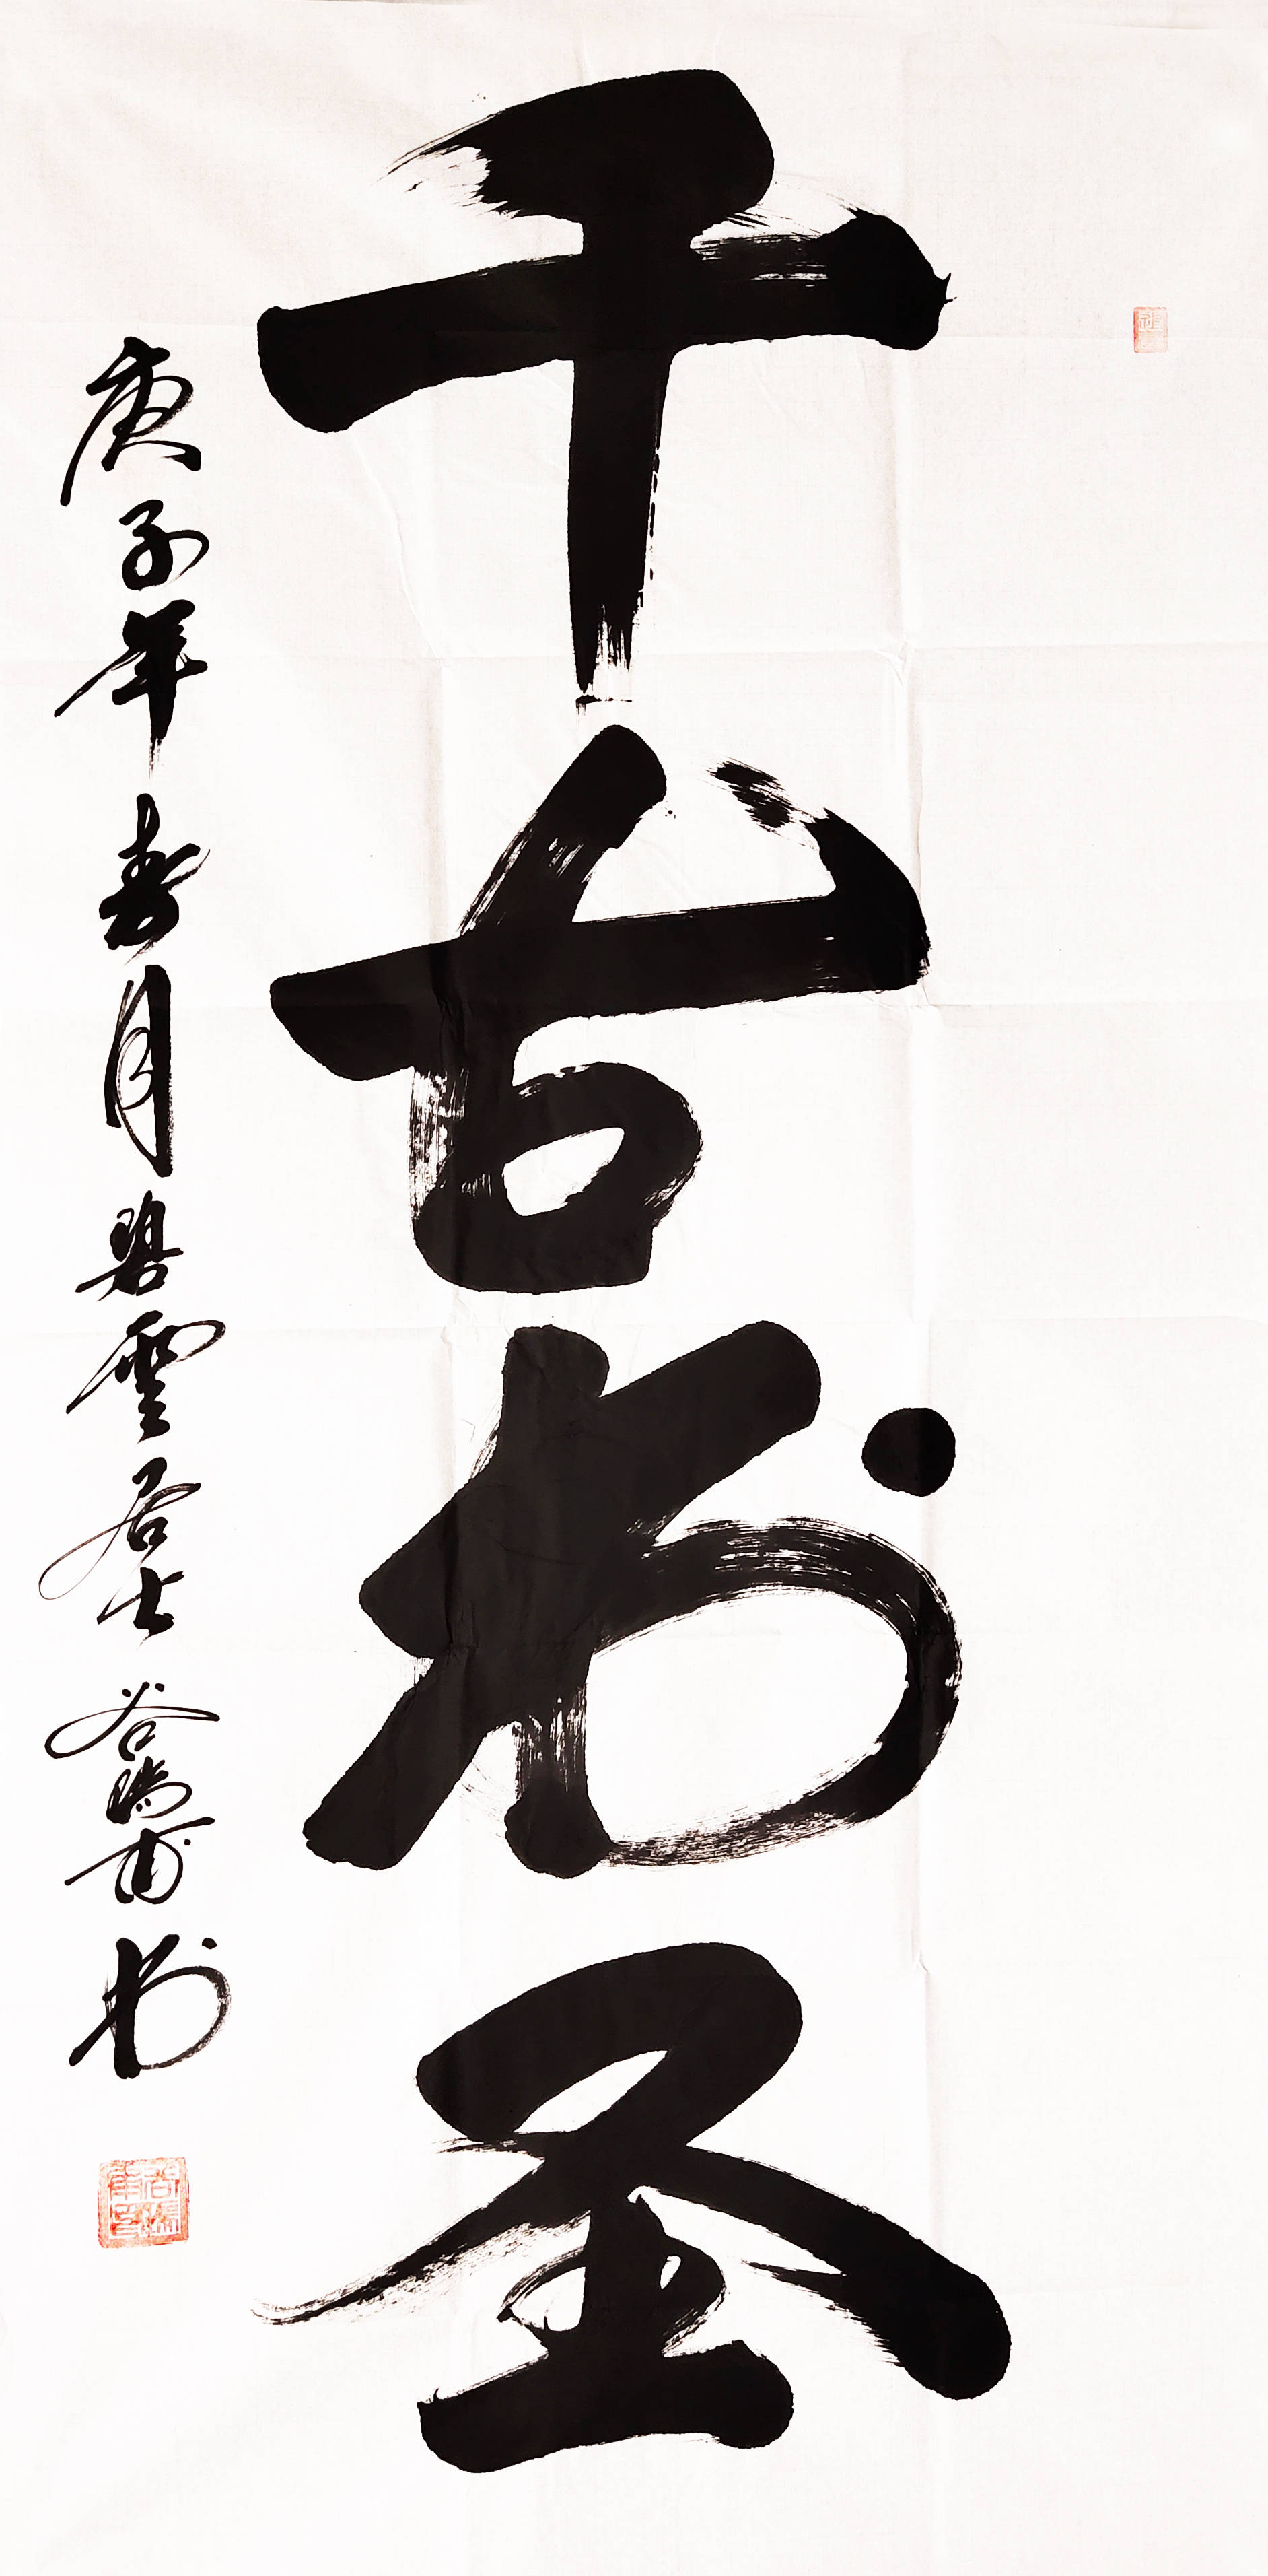 千古书圣
庚子年春月碧云居士谷瑞甫书